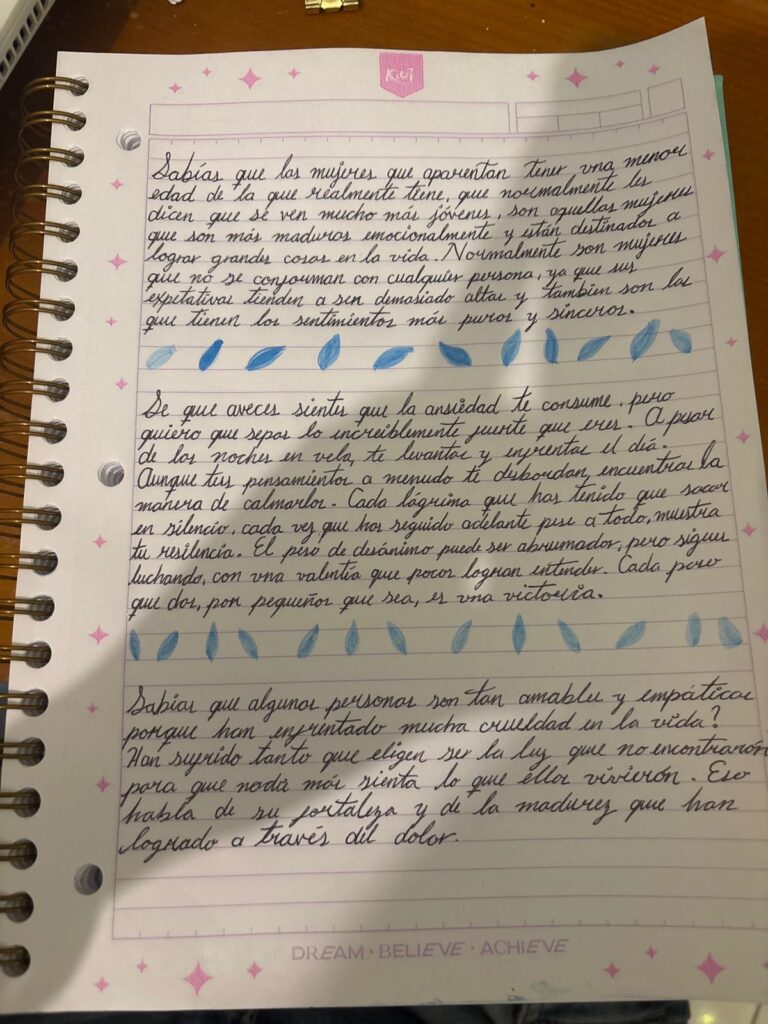 Kiut
Sabías que las mujeres que aparentan tener una menor
edad de la que realmente tiene, que normalmente les
dicen que se ven mucho más jóvenes, son aquellas mujeres
que son más maduras emocionalmente y están destinados a
lograr grandes cosas en la vida. Normalmente son mujeres
que no se conforman con cualquier persona, ya que sus
expetativas tienden a ser demasiado altas y tambien son las
que tienen los sentimientos más puros y sinceros.
Se que aveces sientes que la ansiedad te consume, pero
quiero que sepas lo increiblemente fuerte que eres. A pesar
de las noches en vela, te levantas y enfrentas el día.
Aunque tus pensamientos a menudo te desbordan, encuentras la
manera de calmarlos. Cada lágrima que has tenido que sacar
en silencio, cada vez que has seguido adelante pese a todo, muestra
tu resilencia. El peso de desánimo puede ser abrumador, pero sigues
luchando, con una valentía que pocos logran entender. Cada paso
que das, por pequeños que sea, es una victoria.
Sabías que algunas personas son tan amables y empáticas
porque han enfrentado mucha crueldad en la vida?
Han sufrido tanto que eligen ser la luz que no encontrarón
para que nada más sienta lo que éllos vivierón. Eso
habla de su fortaleza y de la madurez que han
logrado a través del dolor.
DREAM · BELIEVE · ACHIEVE